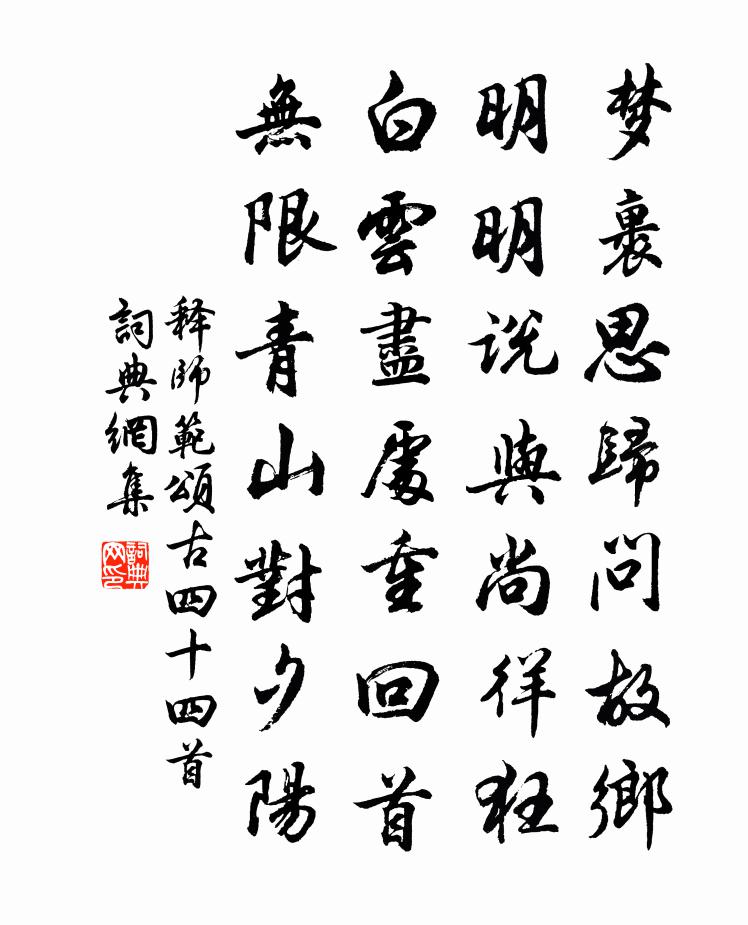 梦裹思歸問故鄉
明明说與尚徉狂
白雲盡處重回首
無限青山對夕陽
释師範頌古四十四首
詞典網集
詞典网印